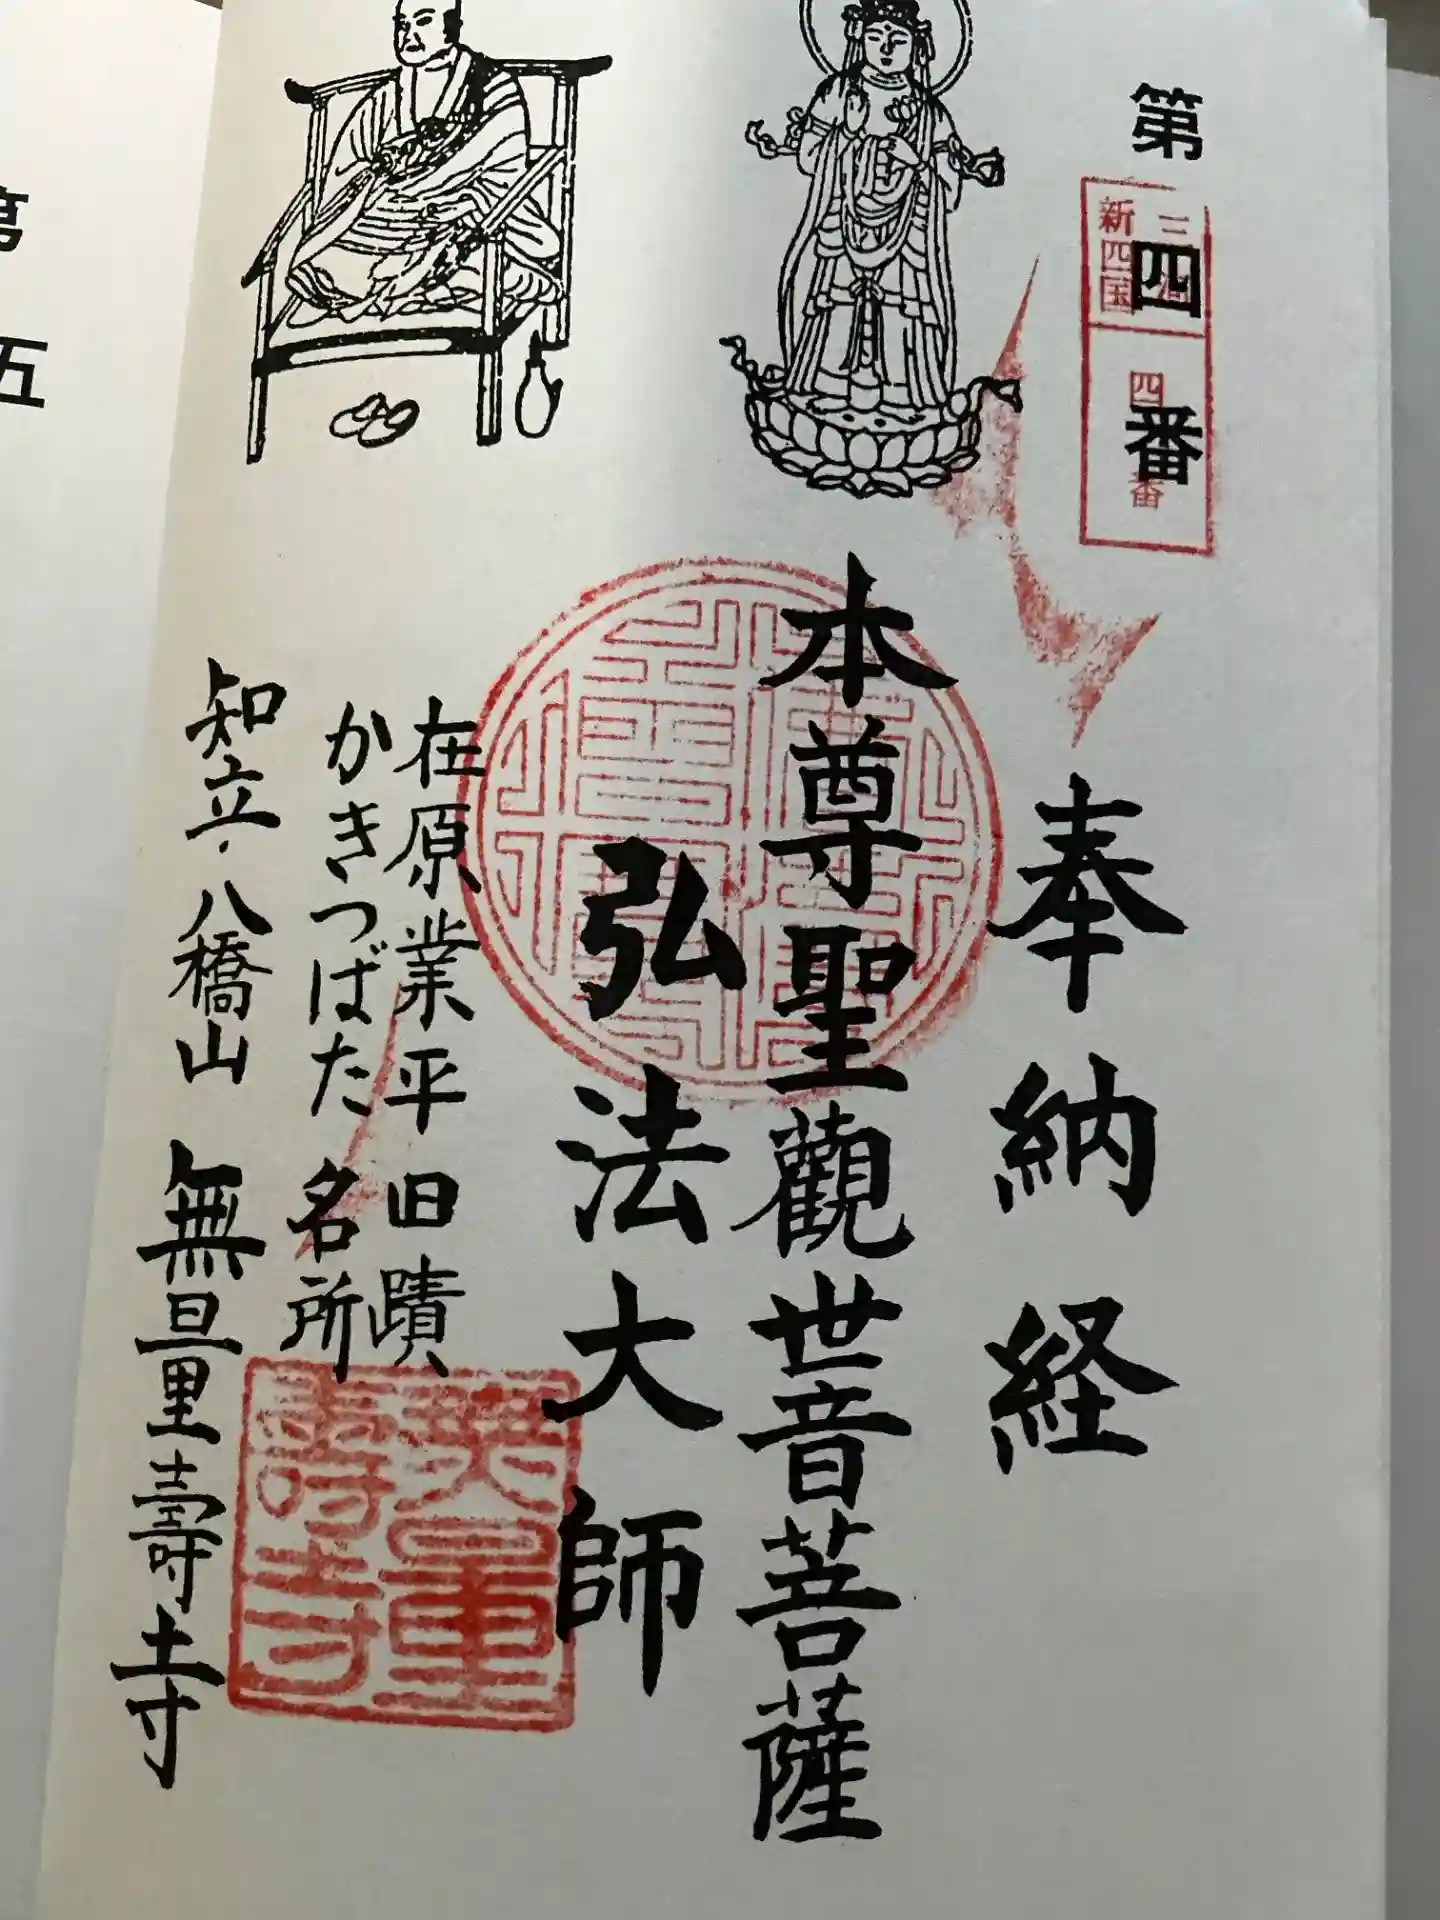 第四番
三河
新四国
四番
奉納経
本尊聖觀世音菩薩
弘法大師
在原業平旧蹟
かきつばた名所
知立・八橋山 無量壽寺
無量
壽寺
第五